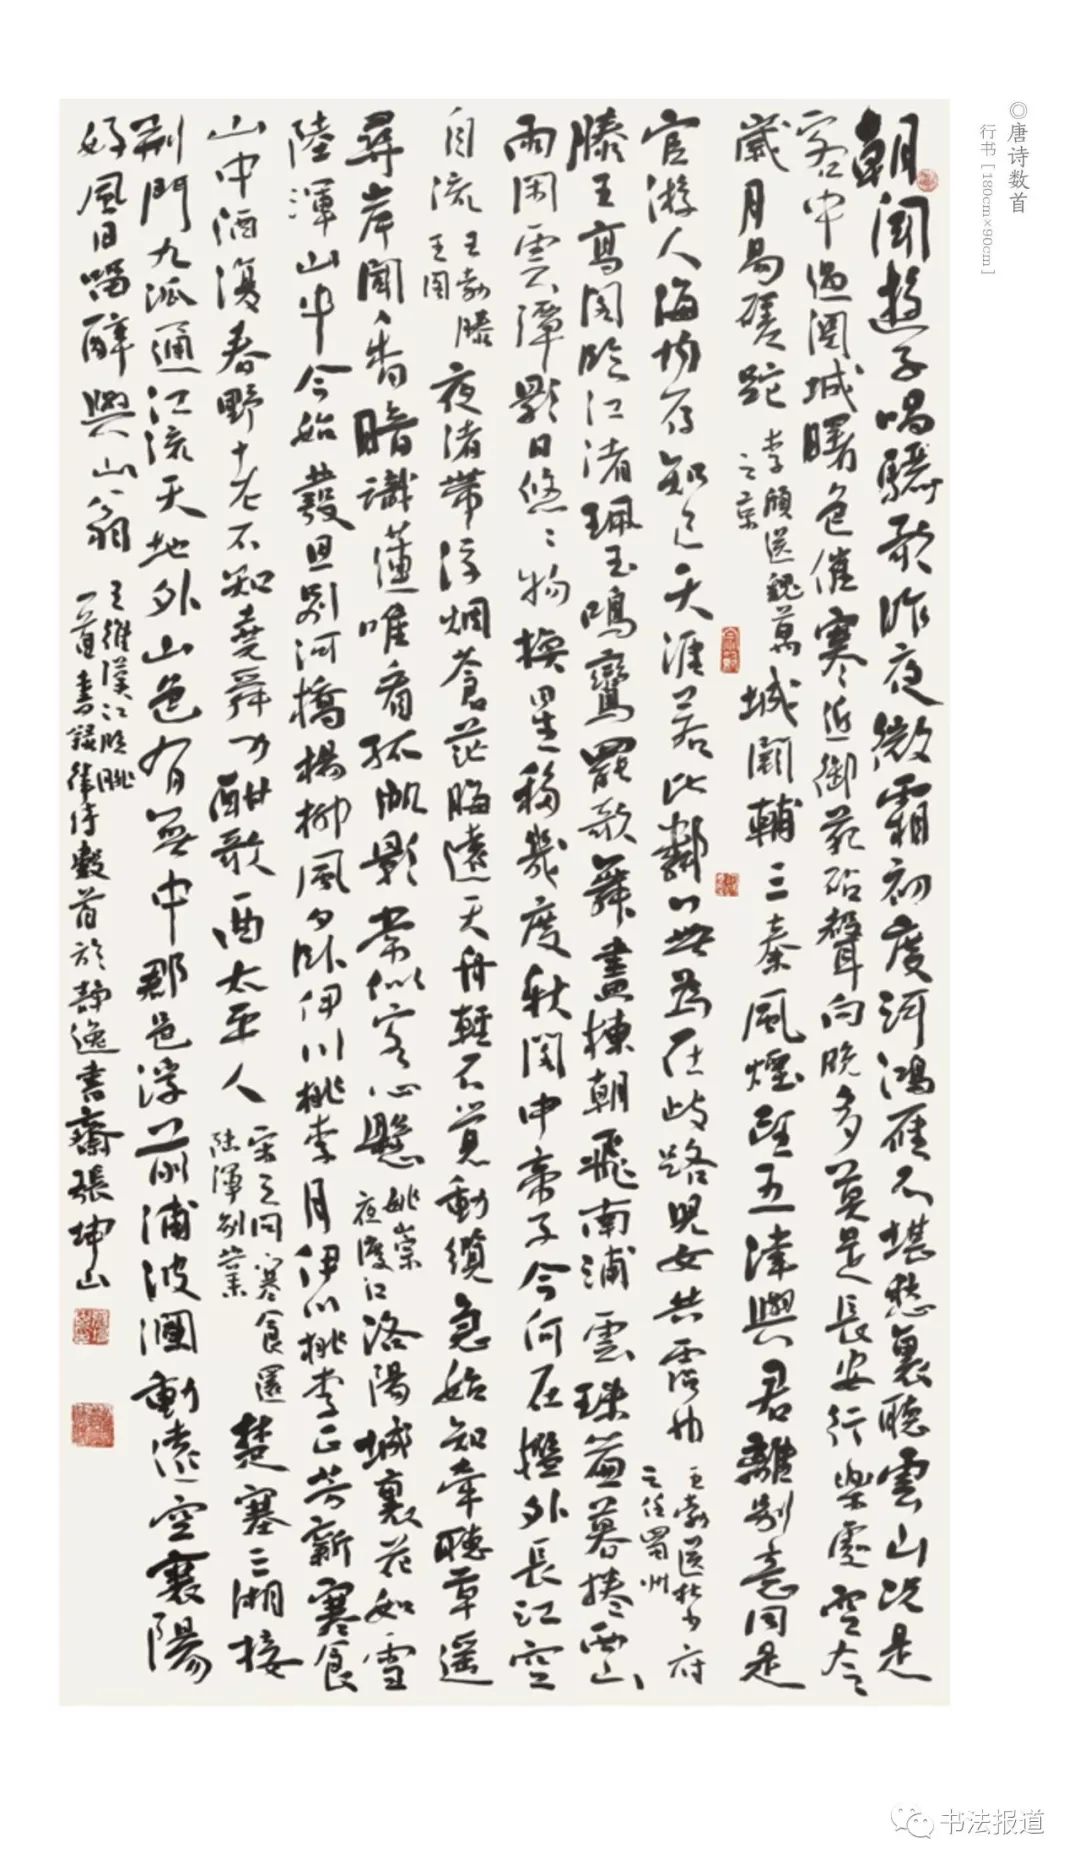 ◎唐诗数首
行书［180cm×90cm］
朝聞遊子唱驪歌昨夜微霜初度河鴻雁不堪愁裏聽雲山況是
客中過關城曙色催寒近御苑砧聲向晚多莫是長安行樂處空令
歲月易蹉跎
李頎送魏萬
之京
城闕輔三秦風煙望五津與君離別意同是
宦遊人海內存知己天涯若比鄰無為在歧路兒女共霑巾
王勃送杜少府
之任蜀州
滕王高閣臨江渚珮玉鳴鸞罷歌舞畫棟朝飛南浦雲珠簾暮捲西山
雨閑雲潭影日悠〻物換星移幾度秋閣中帝子今何在檻外長江空
自流
王勃滕
王閣
夜渚帶浮烟蒼茫晦遠天舟輕不覺動纜急始知牽聽草遥
尋岸聞香暗識蓮唯看孤帆影常似客心懸
姚崇
夜渡江
洛陽城裏花如雪
陸渾山中今始發旦別河橋楊柳風夕臥伊川桃李月伊川桃李正芳新寒食
山中酒復春野老不知堯舜力酣歌一曲太平人
宋之問寒食還
陸渾別業
楚塞三湘接
荆門九派通江流天地外山色有無中郡邑浮前浦波瀾動遠空襄陽
好風日留醉與山翁
王維漢江臨眺
一首書錄唐詩數首於静逸書齋張坤山
书法报道